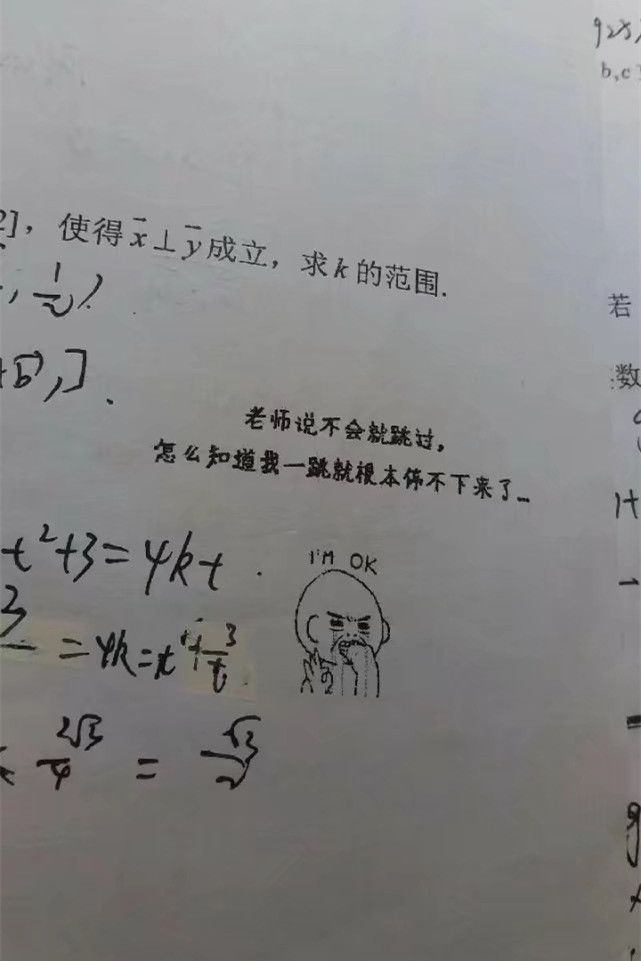 2]，使得x̄⊥ȳ成立，求k的范围.
, 1/2).
+b⃗)²].
老师说不会就跳过，
怎么知道我一跳就根本停不下来了...
t²+3=4kt.
I'M OK
3
=4k=t+3/t
2√3/4 = √3/2
b,c
若
数